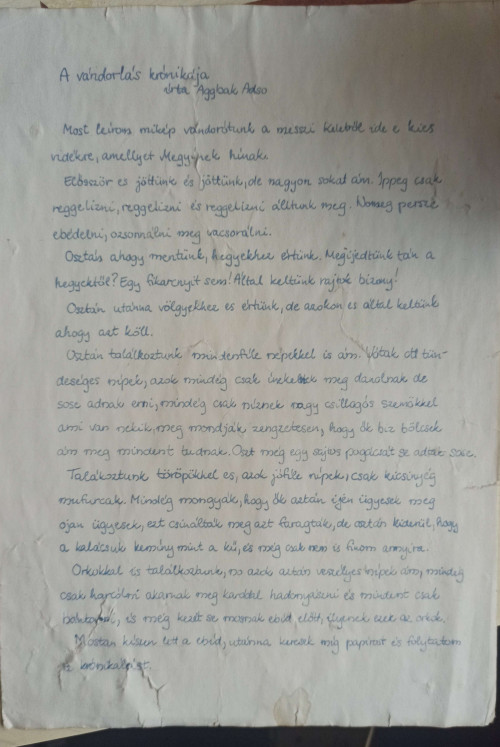 A vándorlás krónikája
írta Aggbak Adso
Most leírom mikép vándorótunk a meszi keletről ide e kies
vidékre, amellyet Megyinek hínak.
Előszzör es jöttünk és jöttünk, de nagyon sokat ám. Ippeg csak
reggelizni, reggelizni és reggelizni álltunk meg. No meg persze
ebédelni, ozsonnálni meg vacsorálni.
Osztán ahogy mentünk, hegyekhez értünk. Megijedtünk tán a
hegyektől? Egy fikarnyit sem! Által keltünk rajtok bizony!
Osztán utánna völgyekhez es értünk, de azokon es által keltünk
ahogy azt köll.
Osztán találkoztunk mindenféle népekkel is ám. Vótak ott tün-
dességes népek, azok mindég csak énekeltek meg danoltak de
sose adnak enni, mindég csak néznek nagy csillagós szemökkel
ami van nekik, meg mondják zengzetesen, hogy ők biz bölcsek
ám meg mindent tudnak. Oszt még egy szijas pogácsát se adtak soha.
Találkoztunk töröpükkel es, azok jóféle népek, csak kicsinyég
mufurcak. Mindég mongyák, hogy ők aztán ijen ügyesek meg
ojan ügyesek, ezt csináltak meg azt faragtak, de osztán kiderül, hogy
a kalácsuk kemény mint a kű, és még csak nem is finom annyira.
Orkokkal is találkoztunk, no azok aztán veszélyes népek ám, mindég
csak harcólni akarnak meg karddal hadonyászni és mindent csak
és még kezet se mosnak ebéd előtt, ilyenek ezek az orkok.
Mostan készen lett a ebéd, utánna keresek még papírost és folytatom
a krónikálást.